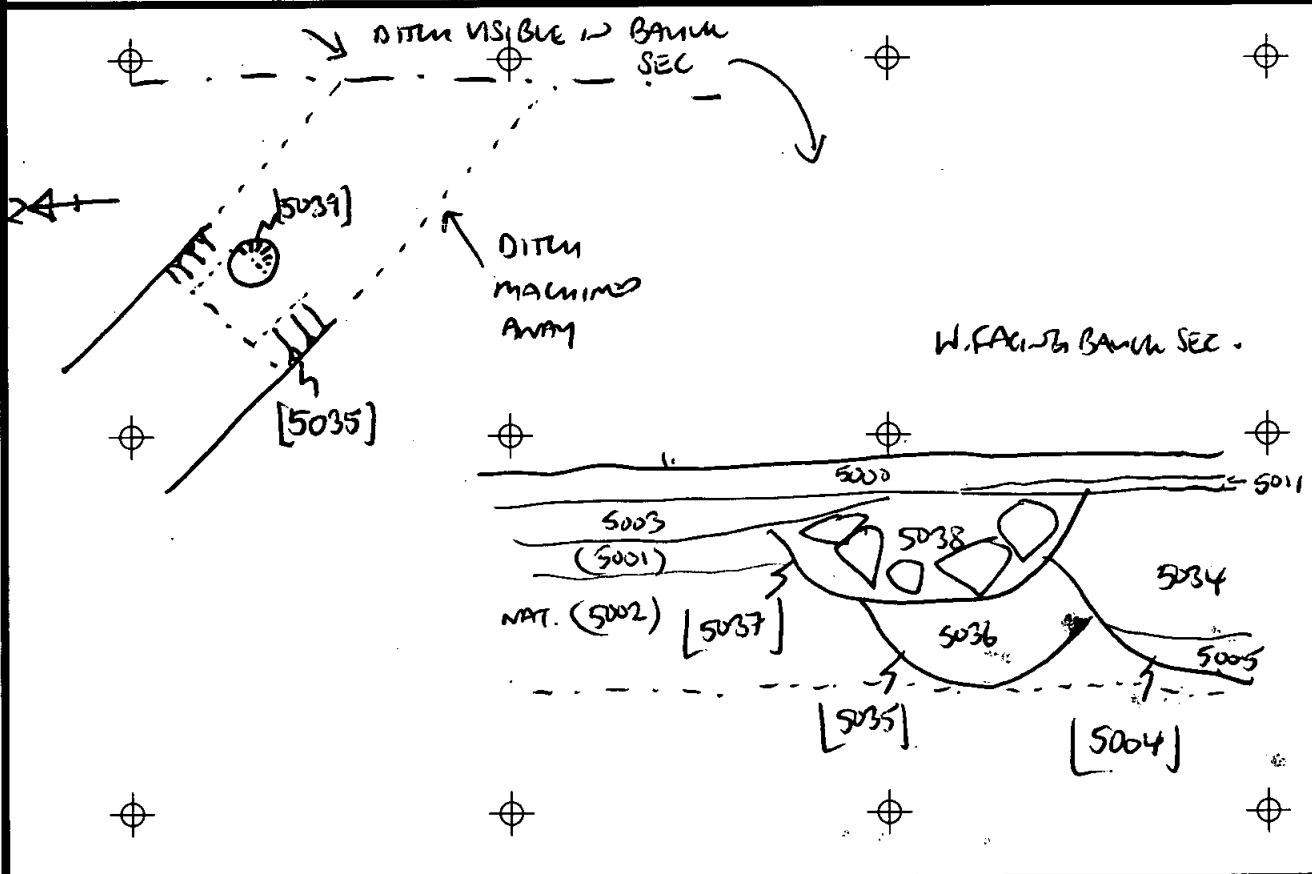 DITCH VISIBLE IN BAULK
SEC
[5039]
DITCH
MACHINED
AWAY
W. FACING BAULK SEC.
[5035]
5000
5011
5003
5038
(5001)
5034
NAT. (5002)
[5037]
5036
5005
[5035]
[5004]